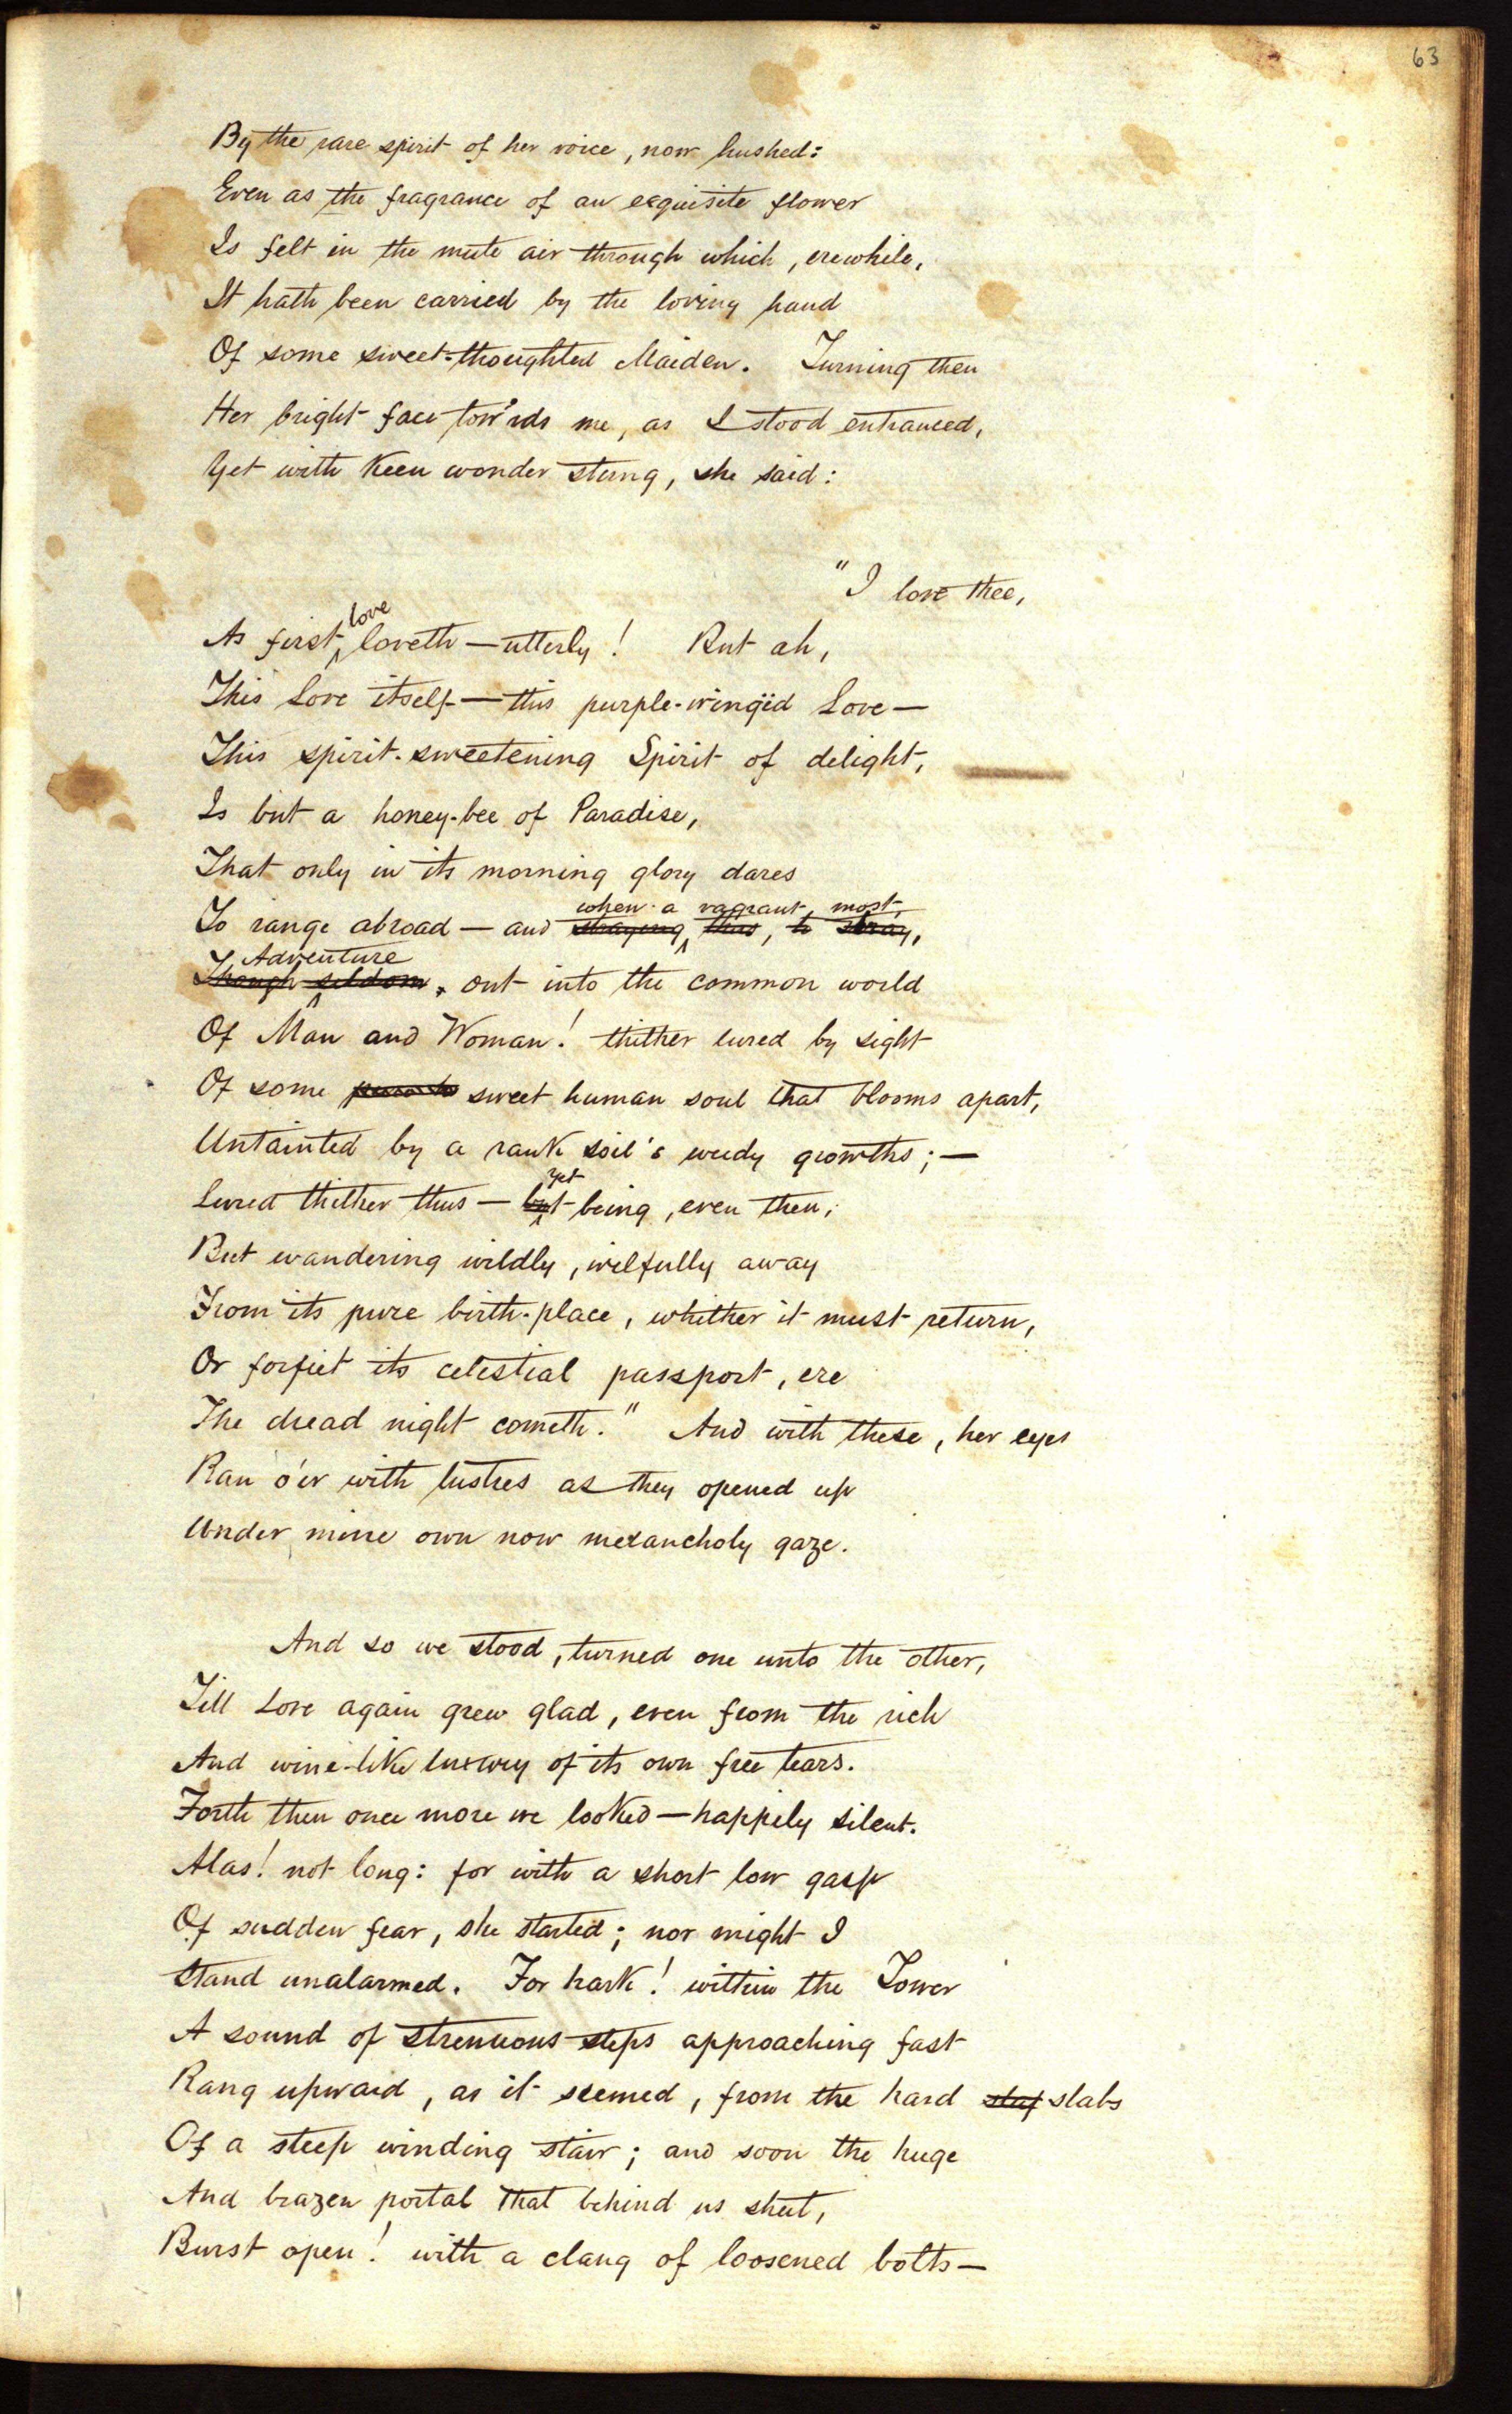 63
By the rare spirit of her voice, now hushed:
Even as the fragrance of an exquisite flower
Is felt in the mute air through which, erewhile,
It hath been carried by the loving hand
Of some sweet-thoughted Maiden. Turning then
Her bright face tow'rds me, as I stood entranced,
Yet with keen wonder stung, she said:
"I love thee,
love
As first loveth—utterly! But ah,
This Love itself—this purple-wingëd Love—
This spirit-sweetening Spirit of delight,
Is but a honey-bee of Paradise,
That only in its morning glory dares
when a vagrant, most,
To range abroad — and straying, thus, to stray,
Adventure
Though seldom, out into the common world
Of Man and Woman! thither lured by sight
Of some sweet human soul that blooms apart,
Untainted by a rank soil's weedy growths;—
yet
Lured thither thus — but being, even then,
But wandering wildly, wilfully away
From its pure birth-place, whither it must return,
Or forfiet its celestial passport, ere
The dread night cometh." And with these, her eyes
Ran o'er with lustres as they opened up
Under mine own now melancholy gaze.
And so we stood, turned one unto the other,
Till Love again grew glad, even from the rich
And wine-like luxury of its own free tears.
Forth then once more we looked—happily silent.
Alas! not long: for with a short low gasp
Of sudden fear, she started; nor might I
Stand unalarmed. For hark! within the Tower
A sound of strenuous steps approaching fast
Rang upward, as it seemed, from the hard slaf slabs
Of a steep winding stair; and soon the huge
And brazen portal that behind us shut,
Burst open! with a clang of loosened bolts—